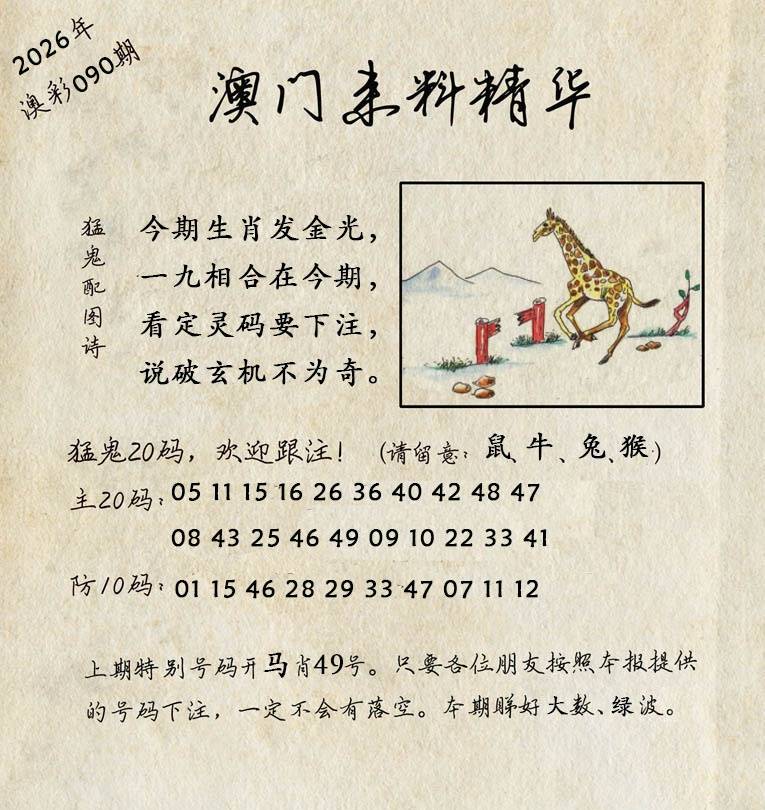 2026年
澳彩090期
澳门来料精华
猛鬼配图诗
今期生肖发金光，
一九相合在今期，
看定灵码要下注，
说破玄机不为奇。
猛鬼20码，欢迎跟注！（请留意：鼠、牛、兔、猴）
主20码：05 11 15 16 26 36 40 42 48 47
08 43 25 46 49 09 10 22 33 41
防10码：01 15 46 28 29 33 47 07 11 12
上期特别号码开马肖49号。只要各位朋友按照本报提供
的号码下注，一定不会有落空。本期睇好大数、绿波。